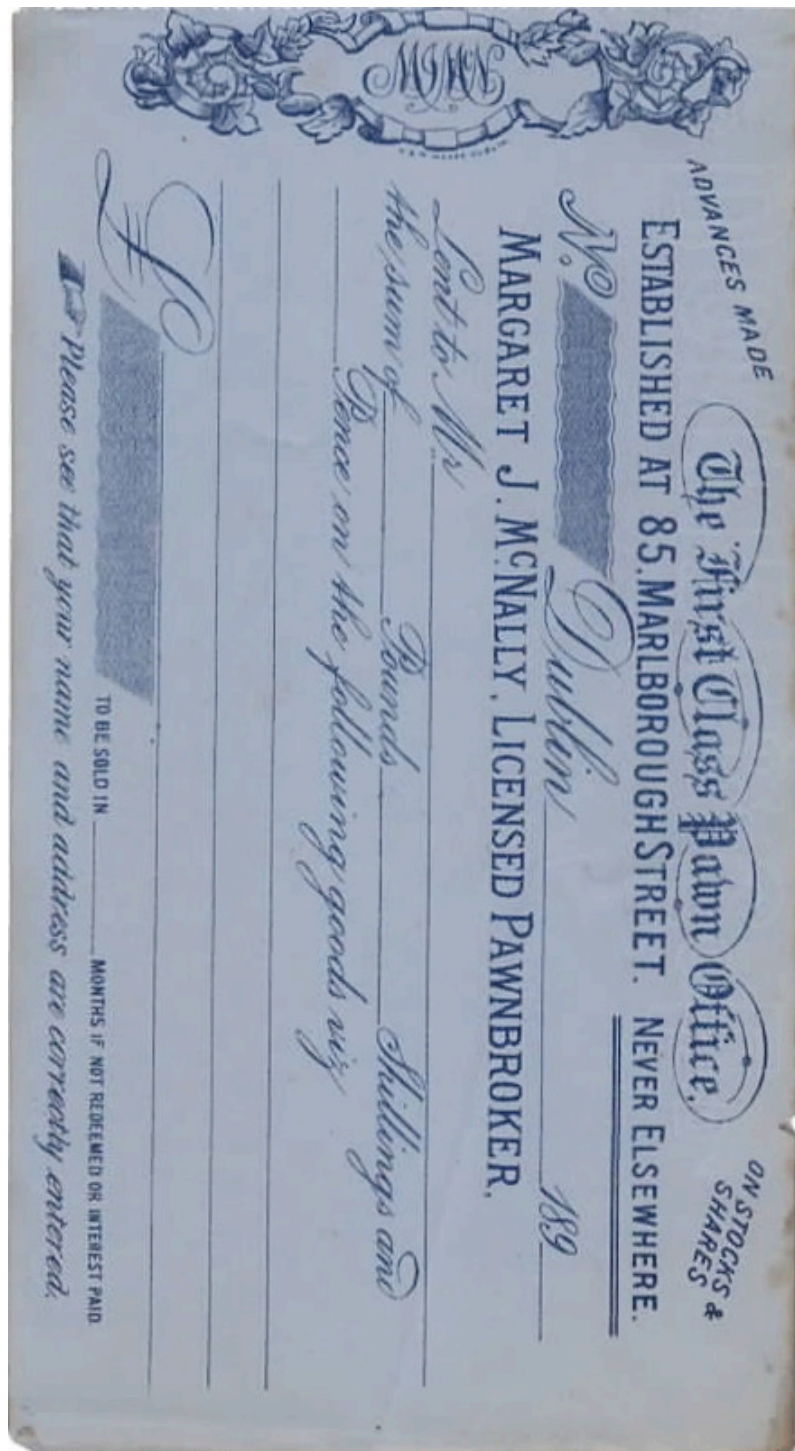 ADVANCES MADE
The First Class Pawn Office.
ON STOCKS &
SHARES
ESTABLISHED AT 85. MARLBOROUGH STREET. NEVER ELSEWHERE.
No. Dublin 189
MARGARET J. McNALLY, LICENSED PAWNBROKER.
Lent to Mr
the sum of Pounds Shillings and
Pence on the following goods viz
£
TO BE SOLD IN MONTHS IF NOT REDEEMED OR INTEREST PAID.
Please see that your name and address are correctly entered.